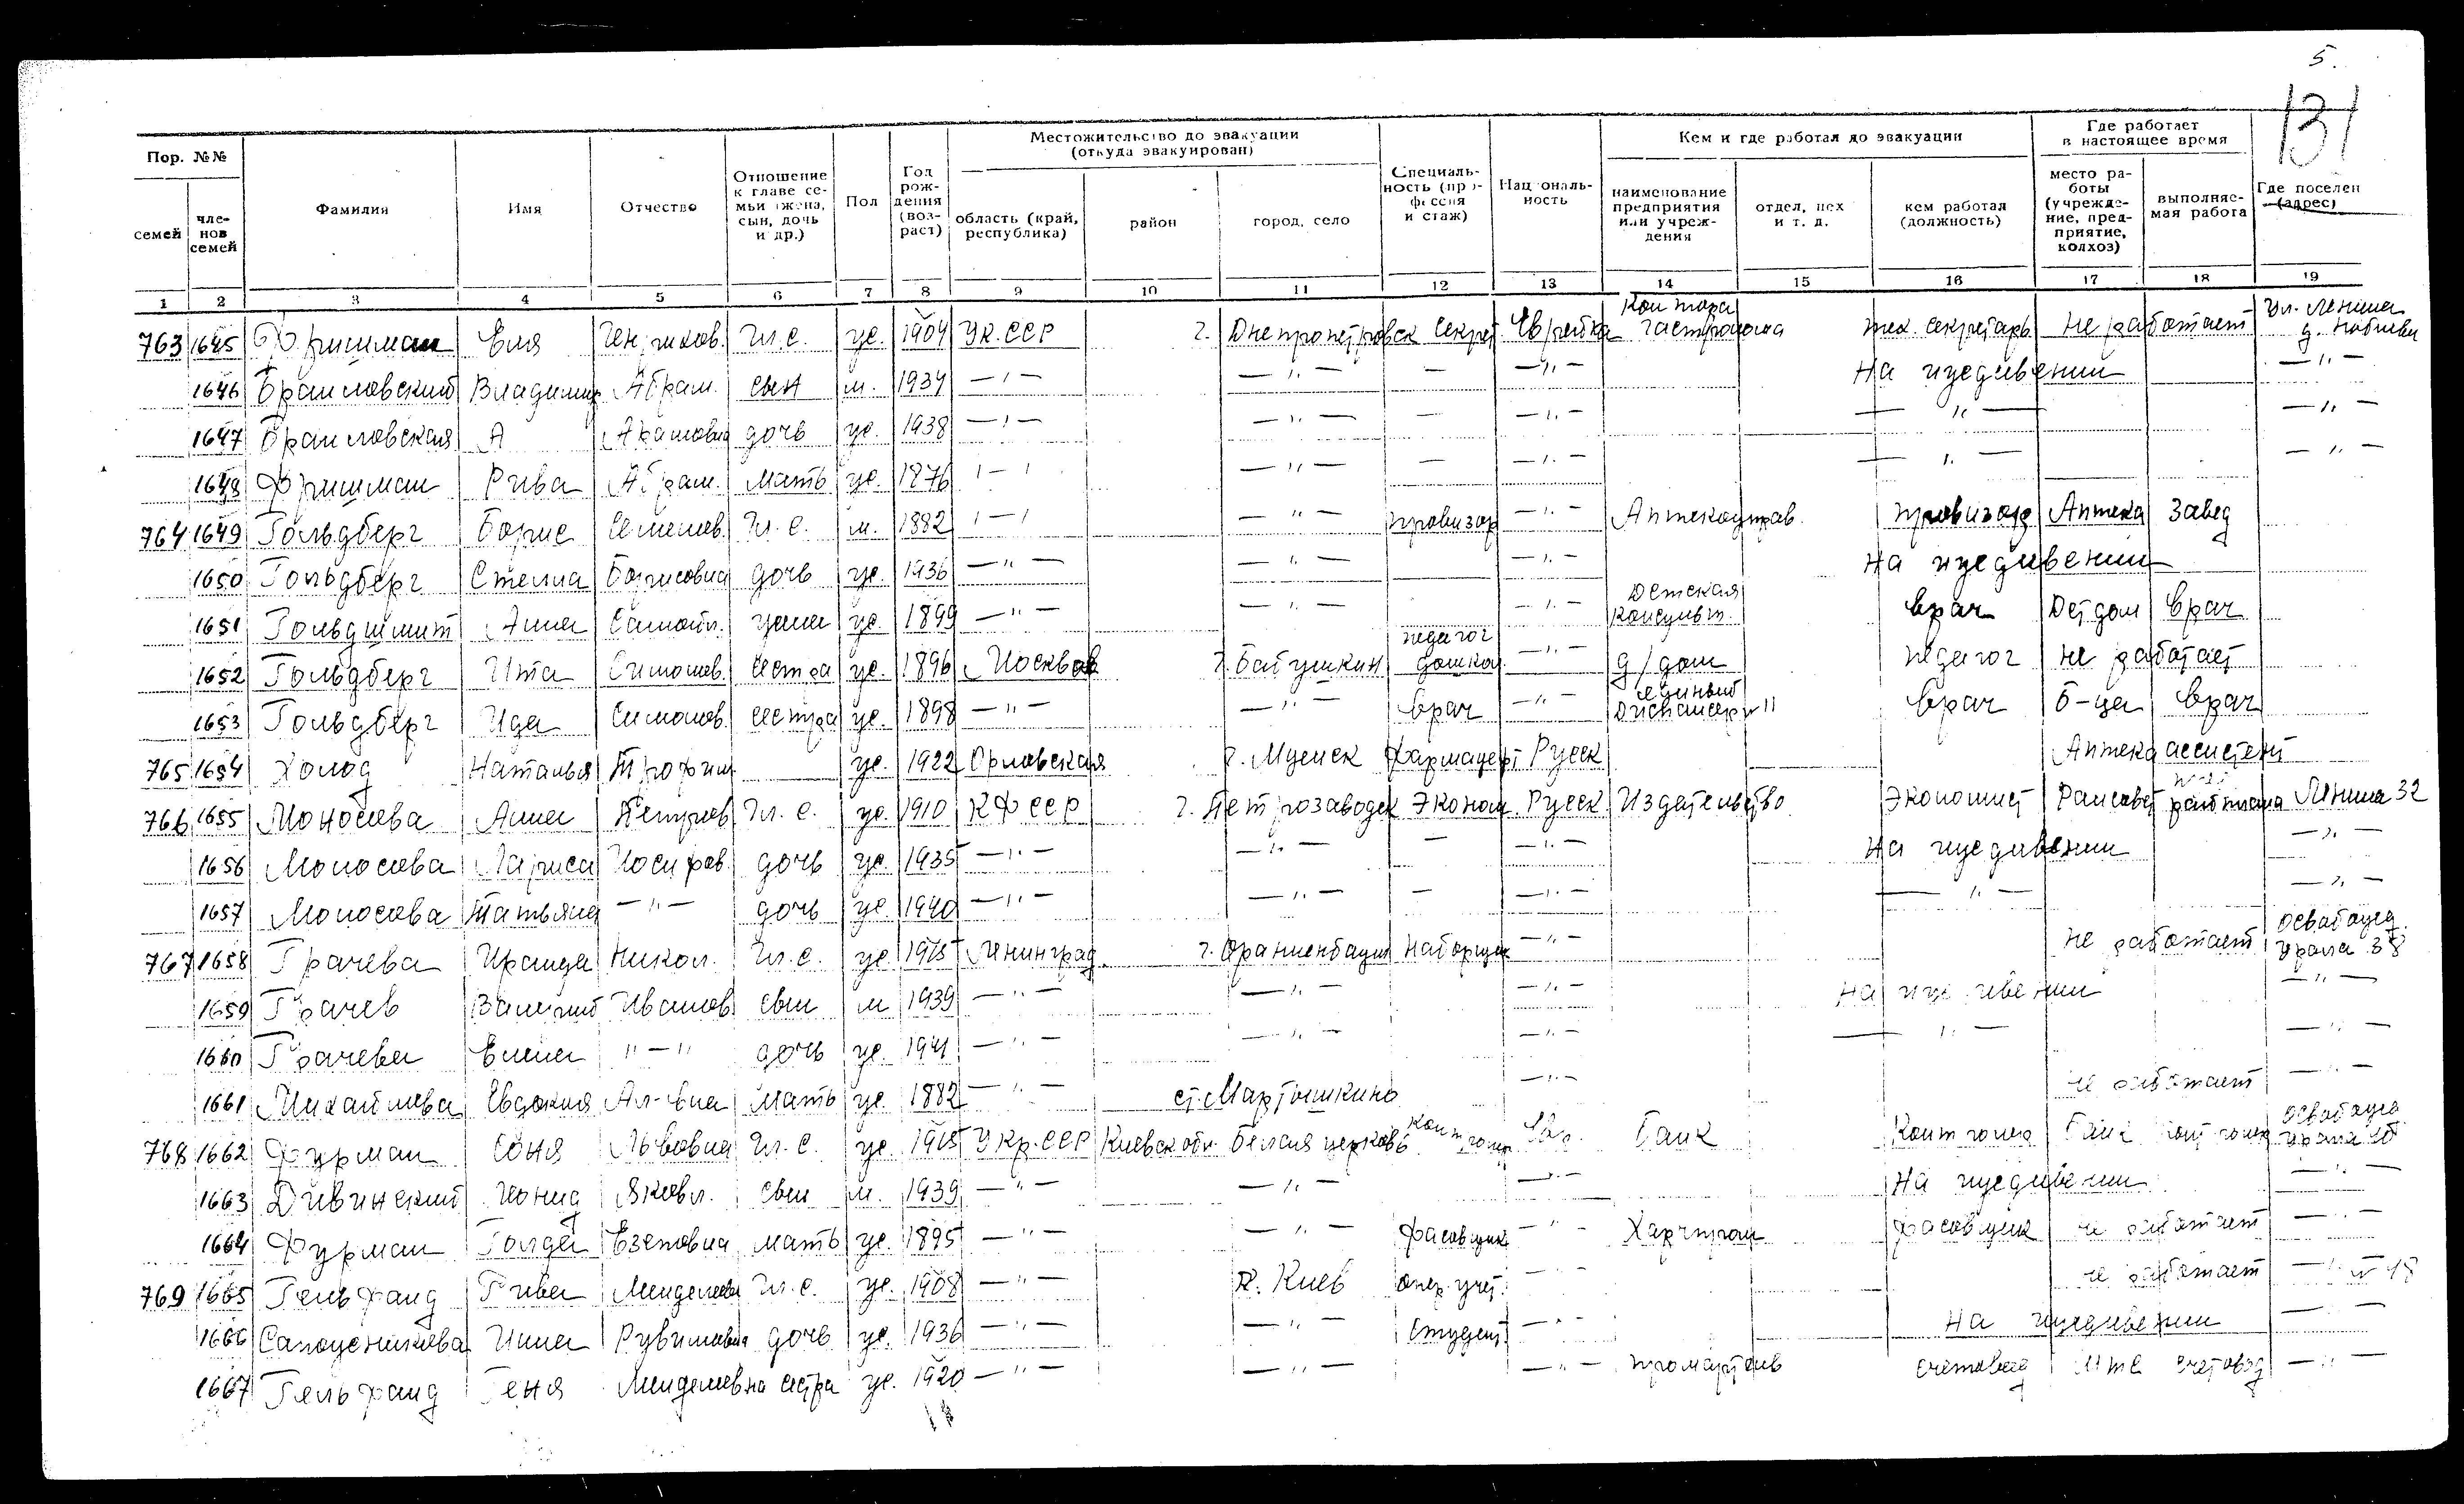 5.
131
Пор. №№
Местожительство до эвакуации (откуда эвакуирован)
Кем и где работал до эвакуации
Где работает в настоящее время
семей
членов семей
Фамилия
Имя
Отчество
Отношение к главе семьи (жена, сын, дочь и др.)
Пол
Год рождения (возраст)
область (край, республика)
район
город, село
Специальность (профессия и стаж)
Национальность
наименование предприятия или учреждения
отдел, цех и т. д.
кем работал (должность)
место работы (учреждение, предприятие, колхоз)
выполняемая работа
Где поселен (адрес)
1 2 3 4 5 6 7 8 9 10 11 12 13 14 15 16 17 18 19
763 1645 Фришман Еля Генрихов. Гл. с. же. 1904 Ук. ССР г. Днепропетровск Секрет. Еврейка Контора гастронома тех. секретарь не работает Ул. Ленина
1646 Браиловский Владимир Абрам. сын м. 1934 —"— —"— — —"— На иждивении —"—
1647 Браиловская А дочь же. 1938 —"— —"— — —"— —"— —"—
1648 Фришман Рива Абрам. мать же. 1876 —"— —"— — —"— —"— —"—
764 1649 Гольдберг Борис Семенов. Гл. с. м. 1882 —"— —"— провизор —"— Аптекоуправ. провизор Аптека Завед
1650 Гольдберг Стелла Борисовна дочь же. 1936 —"— —"— —"— На иждивении
1651 Гольдшмит Анна Самойл. жена же. 1899 —"— —"— —"— Детская консульт. врач Детдом врач
1652 Гольдберг Ита Симонов. сестра же. 1896 Москва г. Бабушкин педагог дошкол. —"— д/дом педагог не работает
1653 Гольдберг Ида Симонов. сестра же. 1898 —"— —"— врач —"— Единый Диспансер №11 врач б-ца врач
765 1654 Холод Наталья Трофим же. 1922 Орловская г. Мценск Фармацевт Русск Аптека ассистент
766 1655 Моносова Анна Петров Гл. с. же. 1910 КФССР г. Петрозаводск Эконом. Русск Издательство Экономист Райсовет Ленина 32
1656 Моносова Лариса Иосифов. дочь же. 1935 —"— —"— — —"— На иждивении —"—
1657 Моносова Татьяна —"— дочь же 1940 —"— —"— — —"— —"— —"—
767 1658 Грачева Ираида Никол. Гл. с. же 1915 Ленинград г. Ораниенбаум Наборщик —"— не работает Освобожд. Урала 38
1659 Грачев Валерий Иванов сын м 1939 —"— —"— —"— На иждивении —"—
1660 Грачева Елена "—" дочь же. 1941 —"— —"— —"— —"— —"—
1661 Михайлова Евдокия Ал-вна мать же. 1882 —"— ст. Мартышкино —"— не работает —"—
768 1662 Фурман Соня Львовна Гл. с. же. 1915 Укр. ССР Киевск обл. Белая церковь контролер Евр. Банк Контролер Банк контролер Освобожд Урала
1663 Дивинский Леонид Яковл. сын м. 1939 —"— —"— —"— На иждивении —"—
1664 Фурман Голда мать же. 1895 —"— —"— фасовщик —"— фасовщик не работает —"—
769 1665 Гельфанд Рива Менделевн Гл. с. же. 1908 —"— г. Киев опер. учет. —"— не работает —"— №18
1666 Сапожникова Инна Рувимовна дочь же. 1936 —"— —"— Студент —"— На иждивении —"—
1667 Гельфанд Геня Менделевна сестра же. 1920 —"— —"— —"— промартель счетовод МТС счетовод —"—